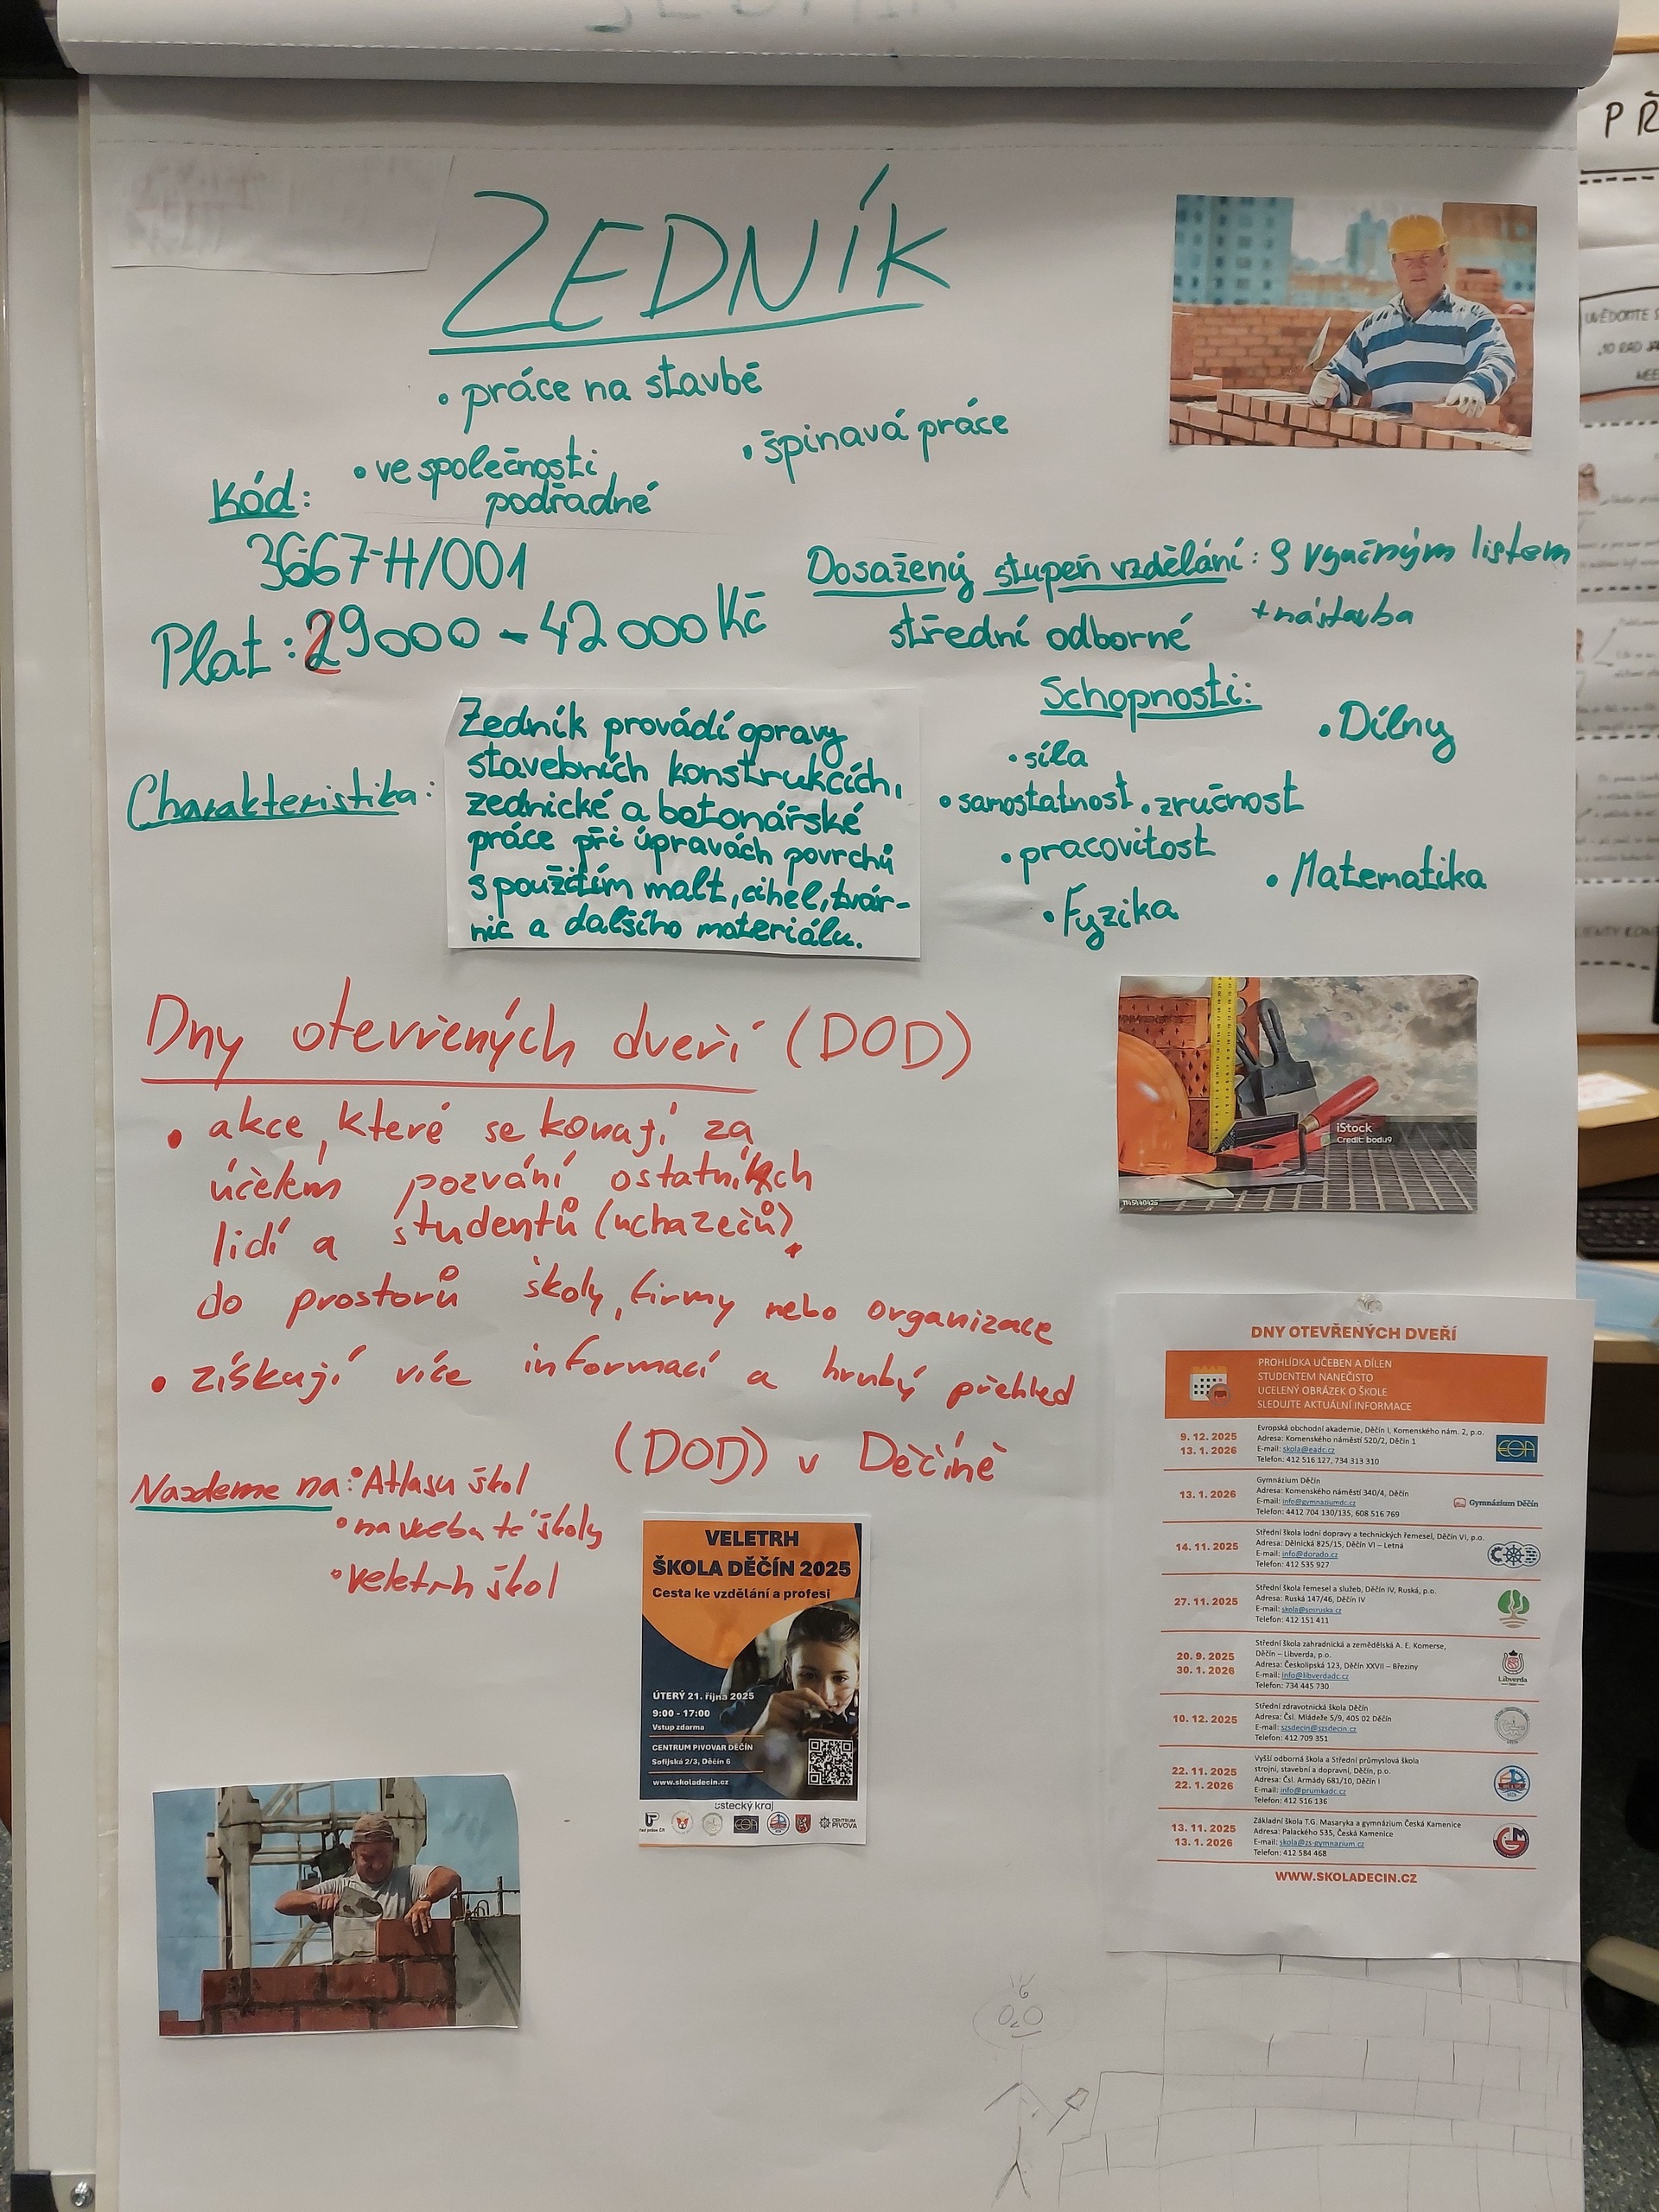 ZEDNÍK
• práce na stavbě
• špinavá práce
• ve společnosti
podřadné
Kód:
36-67-H/001
Plat: 29000 - 42 000 Kč
Dosažený stupeň vzdělání: S vyučným listem
střední odborné
+ nástavba
Charakteristika:
Zedník provádí opravy
stavebních konstrukcích,
zednické a betonářské
práce při úpravách povrchů
s použitím malt, cihel, tvár-
nic a dalšího materiálu.
Schopnosti:
• Dílny
• síla
• samostatnost • zručnost
• pracovitost
• Matematika
• Fyzika
Dny otevřených dveří (DOD)
• akce, které se konají za
účelem pozvání ostatních
lidí a studentů (uchazečů)
do prostorů školy, firmy nebo organizace
• získají více informací a hrubý přehled
(DOD) v Děčíně
Nazdeme na: • Atlasu škol
• na weba té školy
• veletrh škol
iStock
Credit: bodu9
1145140425
VELETRH
ŠKOLA DĚČÍN 2025
Cesta ke vzdělání a profesi
ÚTERÝ 21. října 2025
9:00 - 17:00
Vstup zdarma
CENTRUM PIVOVAR DĚČÍN
Sofijská 2/3, Děčín 6
www.skoladecin.cz
ústecký kraj
CENTRUM
PIVOVA
DNY OTEVŘENÝCH DVEŘÍ
PROHLÍDKA UČEBEN A DÍLEN
STUDENTEM NANEČISTO
UCELENÝ OBRÁZEK O ŠKOLE
SLEDUJTE AKTUÁLNÍ INFORMACE
9. 12. 2025
13. 1. 2026
Evropská obchodní akademie, Děčín I, Komenského nám. 2, p.o.
Adresa: Komenského náměstí 520/2, Děčín 1
E-mail: skola@eadc.cz
Telefon: 412 516 127, 734 313 310
EOA
13. 1. 2026
Gymnázium Děčín
Adresa: Komenského náměstí 340/4, Děčín
E-mail: info@gymnaziumdc.cz
Telefon: 4412 704 130/135, 608 516 769
Gymnázium Děčín
14. 11. 2025
Střední škola lodní dopravy a technických řemesel, Děčín VI, p.o.
Adresa: Dělnická 825/15, Děčín VI – Letná
E-mail: info@dorado.cz
Telefon: 412 535 927
27. 11. 2025
Střední škola řemesel a služeb, Děčín IV, Ruská, p.o.
Adresa: Ruská 147/46, Děčín IV
E-mail: skola@sosruska.cz
Telefon: 412 151 411
20. 9. 2025
30. 1. 2026
Střední škola zahradnická a zemědělská A. E. Komerse,
Děčín – Libverda, p.o.
Adresa: Českolipská 123, Děčín XXVII – Březiny
E-mail: info@libverdadc.cz
Telefon: 734 445 730
Libverda
10. 12. 2025
Střední zdravotnická škola Děčín
Adresa: Čsl. Mládeže 5/9, 405 02 Děčín
E-mail: szsdecin@szsdecin.cz
Telefon: 412 709 351
22. 11. 2025
22. 1. 2026
Vyšší odborná škola a Střední průmyslová škola
strojní, stavební a dopravní, Děčín, p.o.
Adresa: Čsl. Armády 681/10, Děčín I
E-mail: info@prumkadc.cz
Telefon: 412 516 136
13. 11. 2025
13. 1. 2026
Základní škola T.G. Masaryka a gymnázium Česká Kamenice
Adresa: Palackého 535, Česká Kamenice
E-mail: skola@zs-gymnazium.cz
Telefon: 412 584 468
WWW.SKOLADECIN.CZ